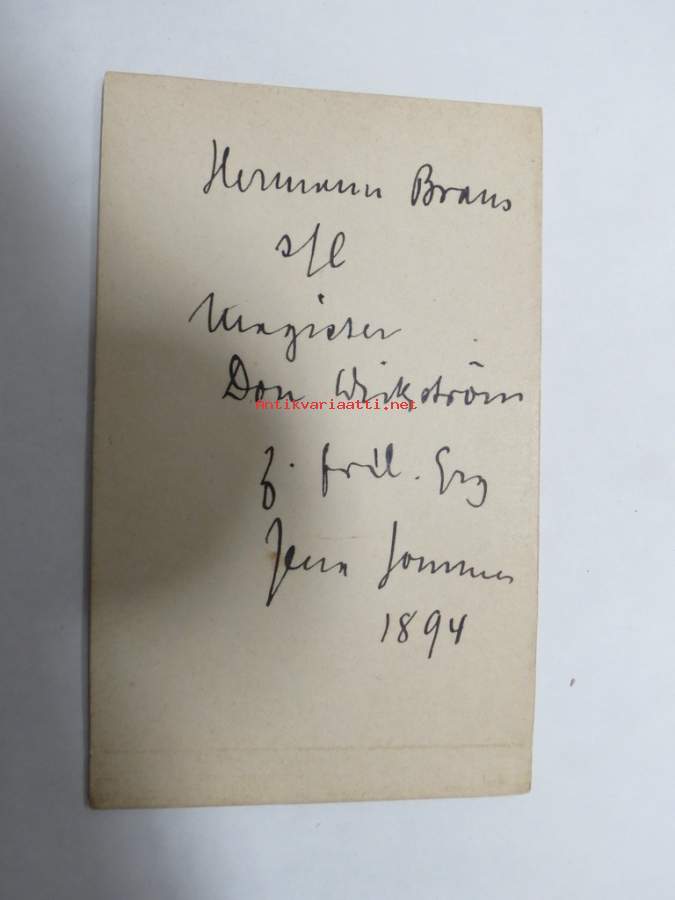 Hermann Braus
s/l
Magister
Don Wikström
antikvariaatti.net
z. frdl. Erg
Jena Sommer
1894